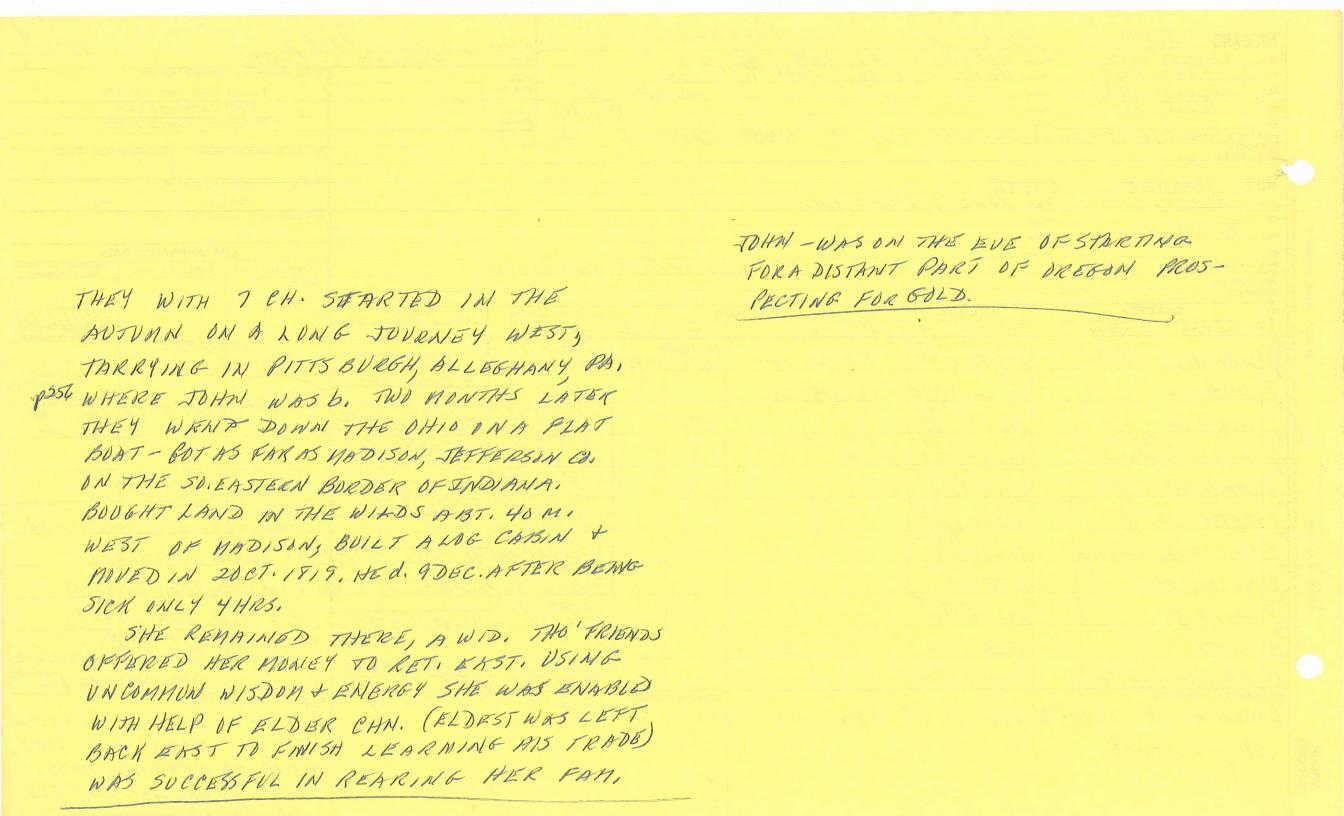 THEY WITH 7 CH. STARTED IN THE
AUTUMN ON A LONG JOURNEY WEST,
TARRYING IN PITTSBURGH, ALLEGHANY, PA.
p556 WHERE JOHN WAS b. TWO MONTHS LATER
THEY WENT DOWN THE OHIO ON A FLAT
BOAT - GOT AS FAR AS MADISON, JEFFERSON CO.
ON THE SO. EASTERN BORDER OF INDIANA.
BOUGHT LAND IN THE WILDS ABT. 40 M.
WEST OF MADISON, BUILT A LOG CABIN +
MOVED IN 2 OCT. 1819. HE d. 9 DEC. AFTER BEING
SICK ONLY 4 HRS.
SHE REMAINED THERE, A WID. THO' FRIENDS
OFFERED HER MONEY TO RET. EAST. USING
UNCOMMUN WISDOM + ENERGY SHE WAS ENABLED
WITH HELP OF ELDER CHN. (ELDEST WAS LEFT
BACK EAST TO FINISH LEARNING HIS TRADE)
WAS SUCCESSFUL IN REARING HER FAM.
JOHN - WAS ON THE EVE OF STARTING
FOR A DISTANT PART OF OREGON PROS-
PECTING FOR GOLD.